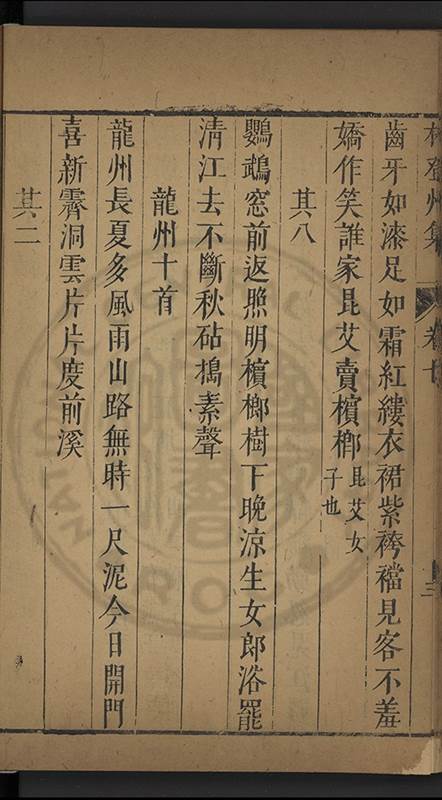 林登州集 卷七
齒牙如漆足如霜紅縷衣裙紫袴襠見客不羞
嬌作笑誰家昆艾賣檳榔昆艾女子也
其八
鸚鵡窓前返照明檳榔樹下晚涼生女郎浴罷
清江去不斷秋砧搗素聲
龍州十首
龍州長夏多風雨山路無時一尺泥今日開門
喜新霽洞雲片片度前溪
其二